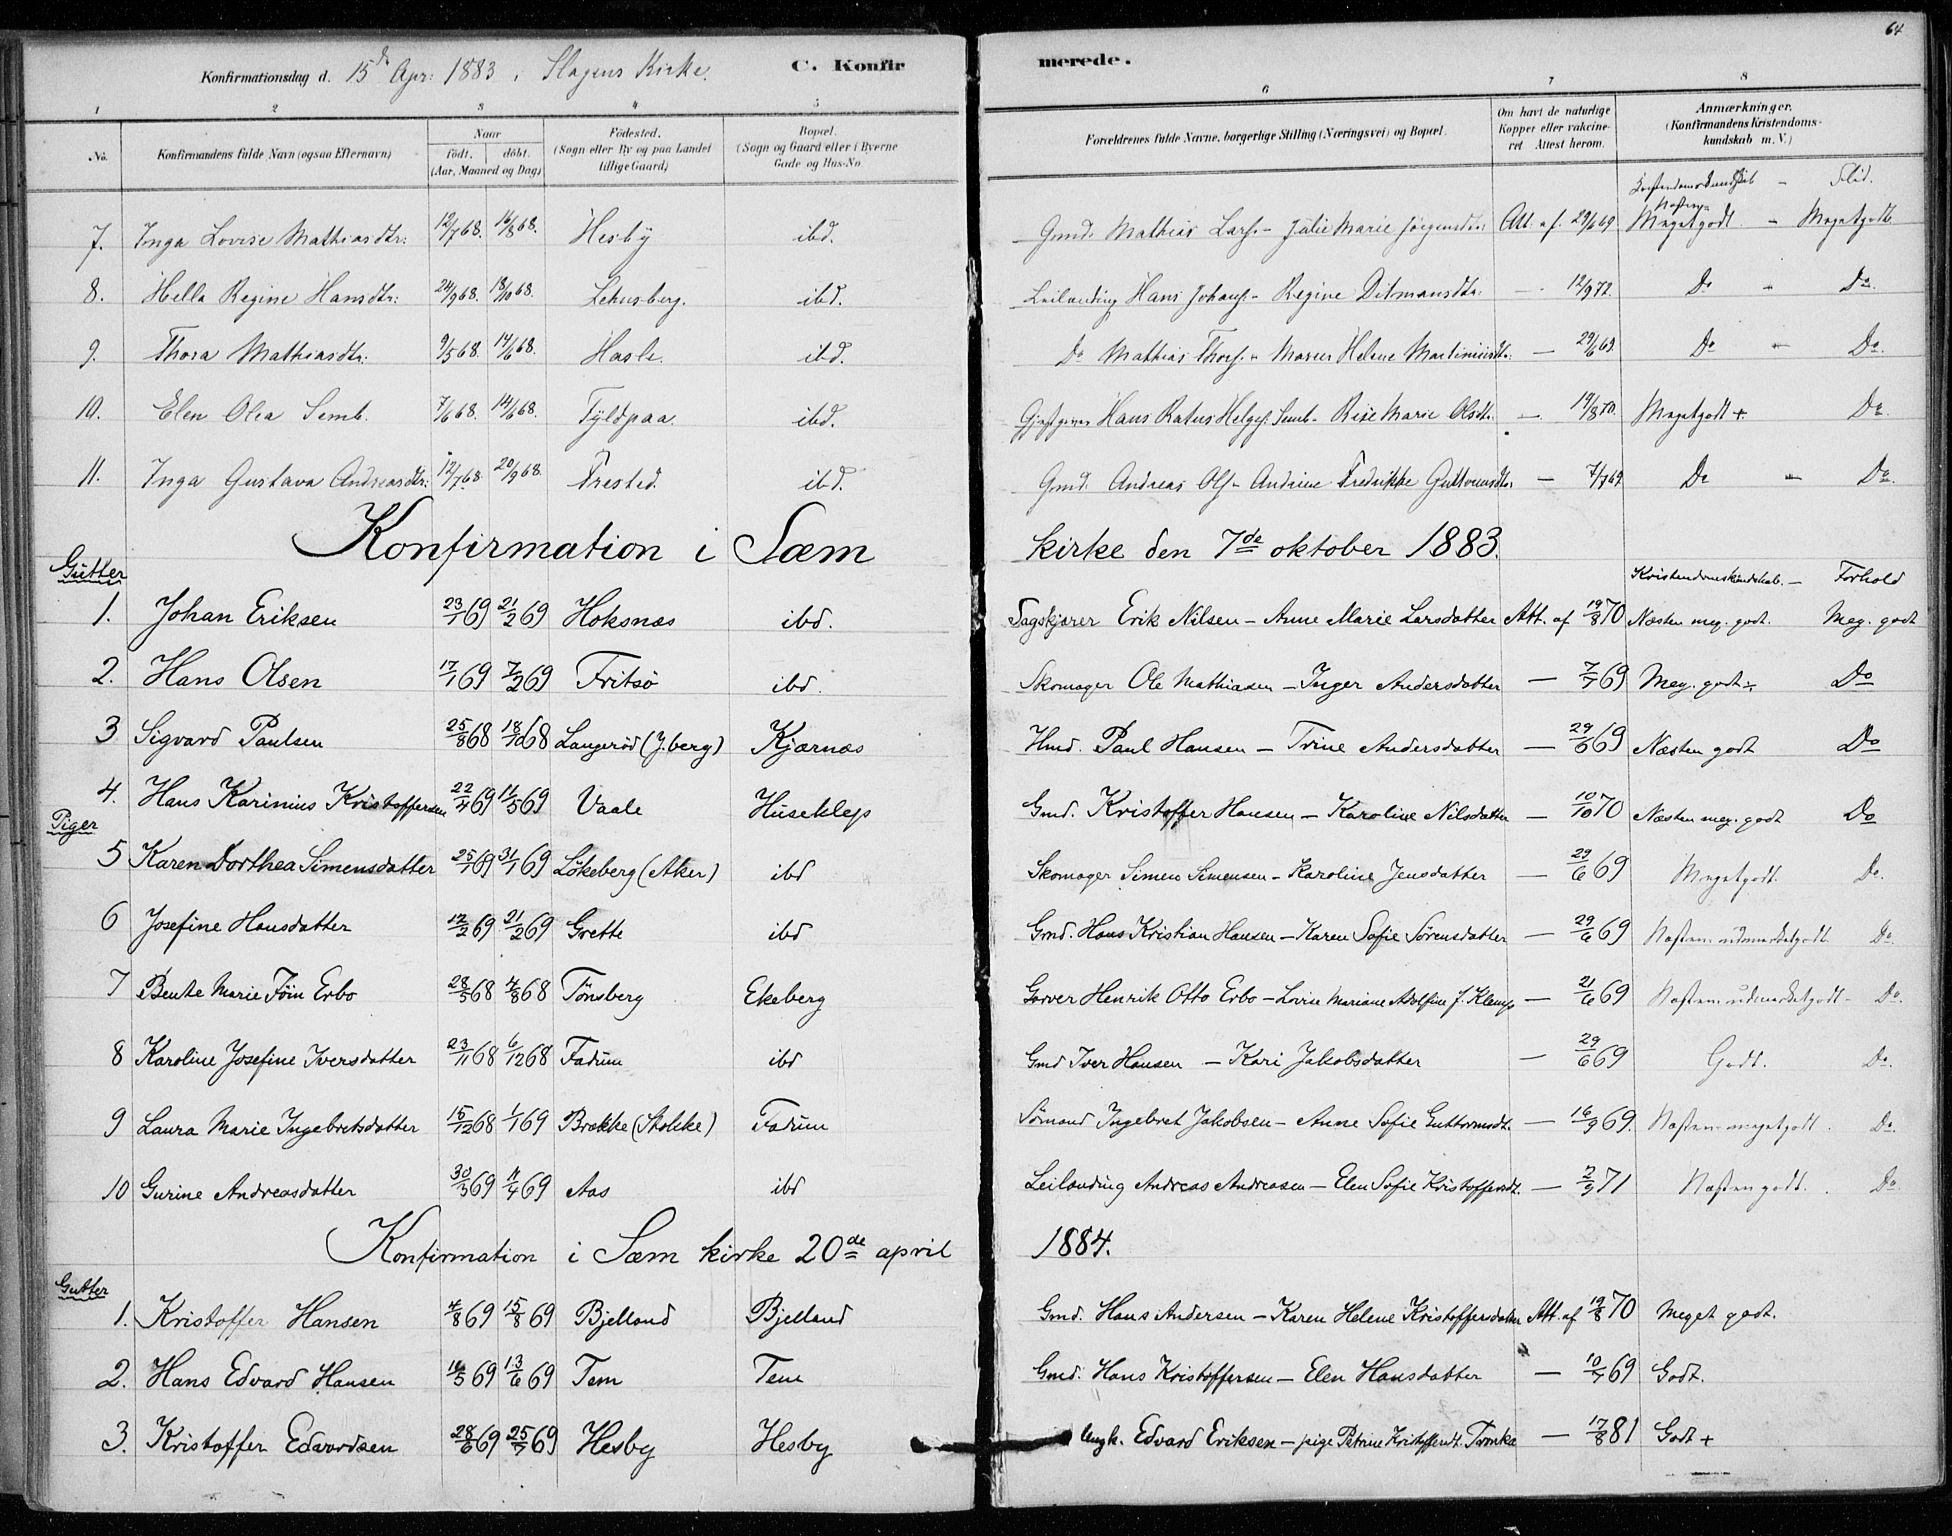 64
Konfirmationsdag d. 15de Apr: 1883 i Slagens Kirke. C. Konfir merede.
1 2 3 4 5 6 7 8
No. Konfirmandens fulde Navn (ogsaa Efternavn) Naar födt. döbt. (Aar, Maaned og Dag) Födested. (Sogn eller By og paa Landet tillige Gaard) Bopæl. (Sogn og Gaard eller i Byerne Gade og Hus-No. Forældrenes fulde Navne, borgerlige Stilling (Næringsvei) og Bopæl. Om havt de naturlige Kopper eller vakcineret Attest herom. Anmærkninger. (Konfirmandens Kristendomskundskab m. V.)
Kristendomskundskab - Flid.
7. Inga Lovise Mathiasdtr: 12/7 68. 16/8 68. Hesby ibd. Gmd. Mathias Lars. - Julie Marie Jörgensdtr: Att. af. 29/6 69 Næsten Megetgodt - Megetgodt
8. Hella Regine Hansdtr: 24/9 68. 18/10 68. Lehnsberg. ibd. Leilænding Hans Johans. - Regine Ditmansdtr: - 12/9 72. Do - Do.
9. Thora Mathiasdtr. 9/5 68. 14/6 68. Hasle. ibd. Do Mathias Thors. - Maren Helene Martiniusdtr. - 29/6 69. Do - Do.
10. Elen Olea Semb. 7/6 68. 14/6 68. Fyldpaa. ibd. Gjæstgiver Hans Ratus Helges. Semb - Rise Marie Olsdtr. - 19/8 70. Megetgodt + Do
11. Inga Gustava Andreasdtr: 12/7 68. 20/9 68. Frested. ibd. Gmd. Andreas Ols. - Andrine Fredrikke Guttormsdtr - 7/7 69. Do - Do.
Konfirmation i Sæm kirke den 7de oktober 1883.
Gutter Kristendomskundskab. - Forhold
1. Johan Eriksen 23/1 69 21/2 69 Hoksnæs ibd. Sagskjærer Erik Nilsen - Anne Marie Larsdatter Att. af 19/8 70 Næsten meg. godt. Meg. godt
2. Hans Olsen 17/1 69 7/2 69 Fritsø ibd. Skomager Ole Mathiasen - Inger Andersdatter - 7/7 69 Meg. godt ÷ Do
3 Sigvard Paulsen 25/8 68 18/10 68 Langerød (J.berg) Kjærnæs Hmd. Paul Hansen - Trine Andersdatter - 29/6 69 Næsten godt Do
4. Hans Karinius Kristoffersen 22/4 69 11/5 69 Vaale Huseklep Gmd. Kristoffer Hansen - Karoline Nilsdatter - 10/10 70 Næsten meg. godt Do
Piger
5 Karen Dorthea Simensdatter 25/1 69 31/1 69 Løkeberg (Aker) ibd Skomager Simen Simensen - Karoline Jensdatter - 29/6 69 Megetgodt. Do.
6 Josefine Hansdatter 12/2 69 21/2 69 Grette ibd Gmd. Hans Kristian Hansen - Karen Sofie Sørensdatter - 29/6 69 Næsten udmærketgodt. Do
7 Bente Marie Føin Erbo 28/5 68 4/8 68 Tønsberg Ekeberg Garver Henrik Otto Erbo - Lovise Mariane Adolfine J. Klemp - 21/6 69 Næsten udmærketgodt - Do.
8 Karoline Josefine Iversdatter 23/11 68 6/12 68 Fadum ibd Gmd Iver Hansen - Kari Jakobsdatter - 29/6 69 Godt. Do.
9 Laura Marie Ingebretsdatter 15/12 68 1/1 69 Brekke (Stokke) Fadum Sømand Ingebret Jakobsen - Anne Sofie Guttormsdt. - 16/9 69. Næsten megetgodt. Do.
10 Gurine Andreasdatter 30/3 69 11/4 69 Aas ibd Leilænding Andreas Andreasen - Elen Sofie Kristoffersdt. - 2/9 71 Næsten godt. Do.
Konfirmation i Sæm kirke 20de april 1884.
Gutter
1. Kristoffer Hansen 4/8 69 15/8 69 Bjelland Bjelland Gmd. Hans Andersen - Karen Helene Kristoffersdatter Att. af 19/8 70 Meget godt.
2. Hans Edvard Hansen 16/5 69 13/6 69 Tem Tem Gmd. Hans Kristoffersen - Elen Hansdatter - 10/7 69 Godt.
3. Kristoffer Edvardsen 28/6 69 25/7 69 Hesby Hesby Ungk. Edvard Eriksen - pige Petrine Kristoffersdt. Tronka - 17/8 81 Godt +